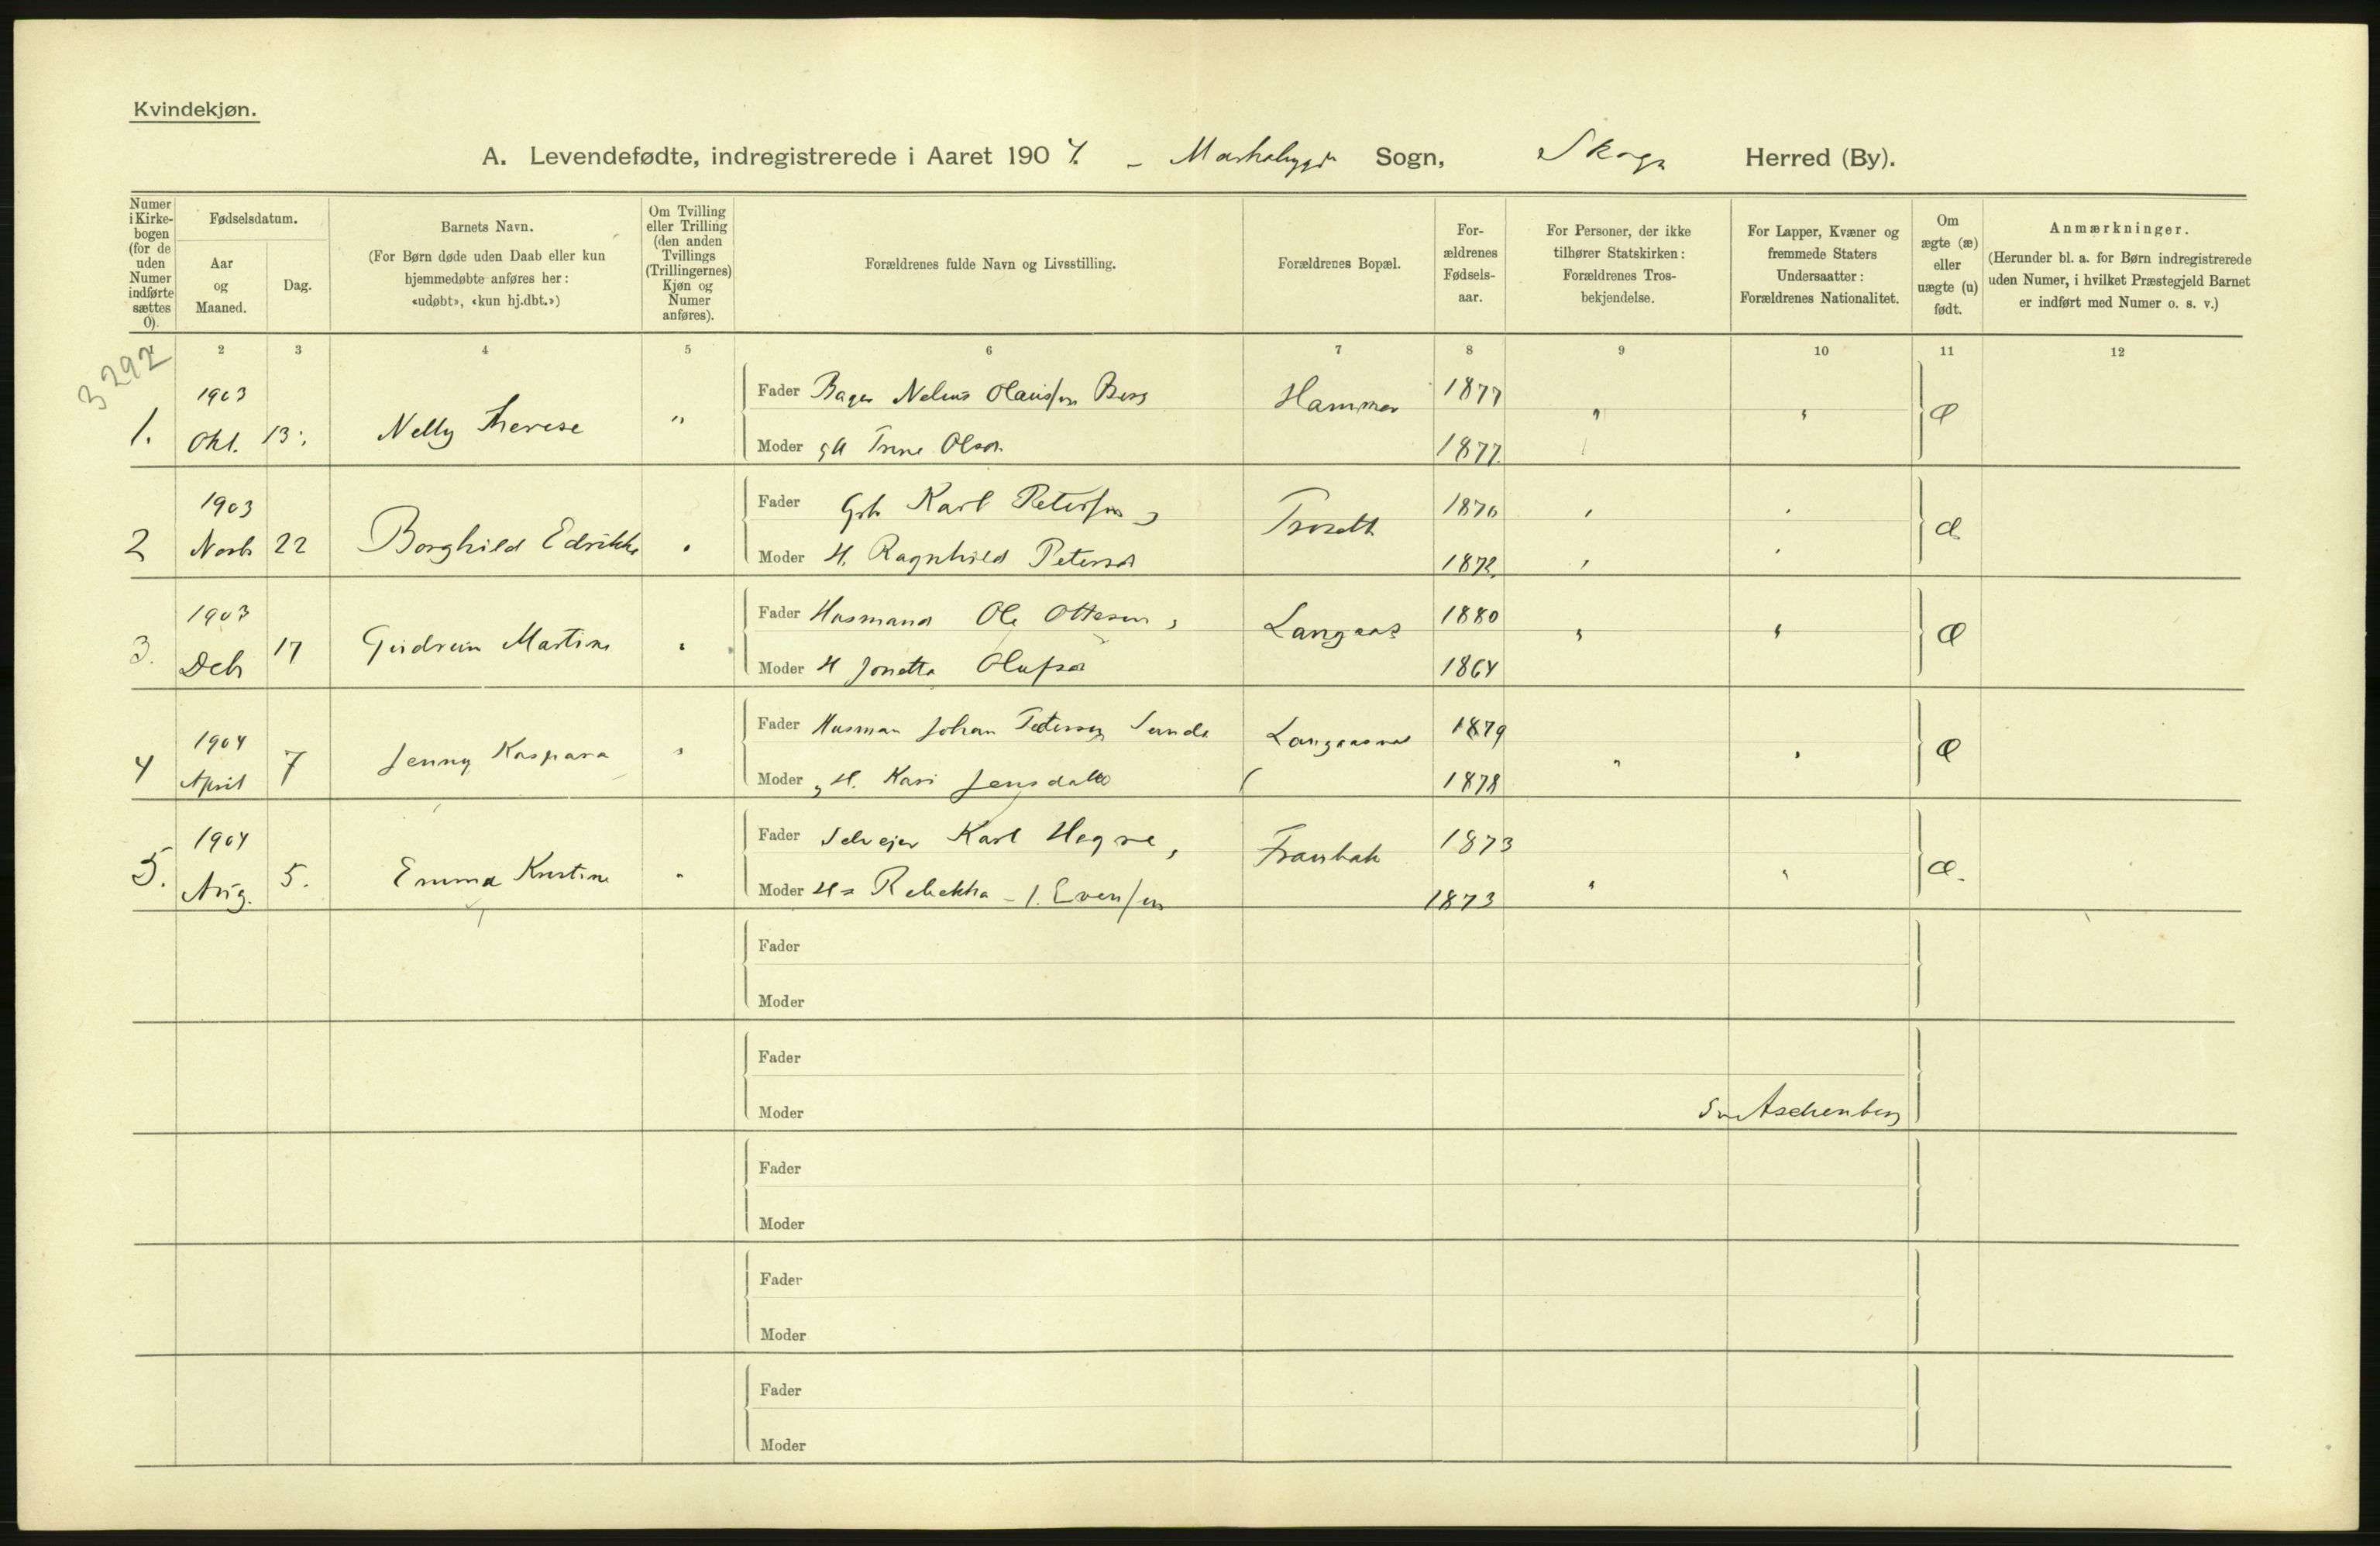 Kvindekjøn.
A. Levendefødte, indregistrerede i Aaret 1904. - Markabygda Sogn, Skogn Herred (By).
Numer i Kirke- bogen (for de uden Numer indførte sættes 0).
Fødselsdatum.
Aar og Maaned.
Dag.
Barnets Navn.
(For Børn døde uden Daab eller kun hjemmedøbte anføres her: «udøbt», «kun hj.dbt.»)
Om Tvilling eller Trilling (den anden Tvillings (Trillingernes) Kjøn og Numer anføres).
Forældrenes fulde Navn og Livsstilling.
Forældrenes Bopæl.
For- ældrenes Fødsels- aar.
For Personer, der ikke tilhører Statskirken: Forældrenes Tros- bekjendelse.
For Lapper, Kvæner og fremmede Staters Undersaatter: Forældrenes Nationalitet.
Om ægte (æ) eller uægte (u) født.
Anmærkninger.
(Herunder bl. a. for Børn indregistrerede uden Numer, i hvilket Præstegjeld Barnet er indført med Numer o. s. v.)
2 3 4 5 6 7 8 9 10 11 12
3292
1903 Fader Bager Nelius Olaus/en Berg Hammer 1877
1. Okt. 13. Nelly Therese " " " æ
Moder Trine Olsdr. 1877.
1903 Fader Grb Karl Peters/en Troseth 1870
2 Novb 22 Borghild Edrikke " æ
Moder H. Ragnhild Petersdr 1872.
1903 Fader Husmand Ole Ottesen, Langaas 1880
3. Deb 17 Gudrun Martine " " " æ
Moder H Jonetta Olufsdr 1864
1904 Fader Husman Johan Petersen Sunde 1879
4 April 7 Jenny Kaspara " " " æ
Moder H. Kari Jensdatter 1878
1904 Fader Selvejer Karl Hegre, 1873
5. Aug. 5. Emma Kristine " " " æ.
Moder H= Rebekka - f. Even/en 1873
Fader
Moder
Fader
Moder Aschenberg
Fader
Moder
Fader
Moder
Fader
Moder